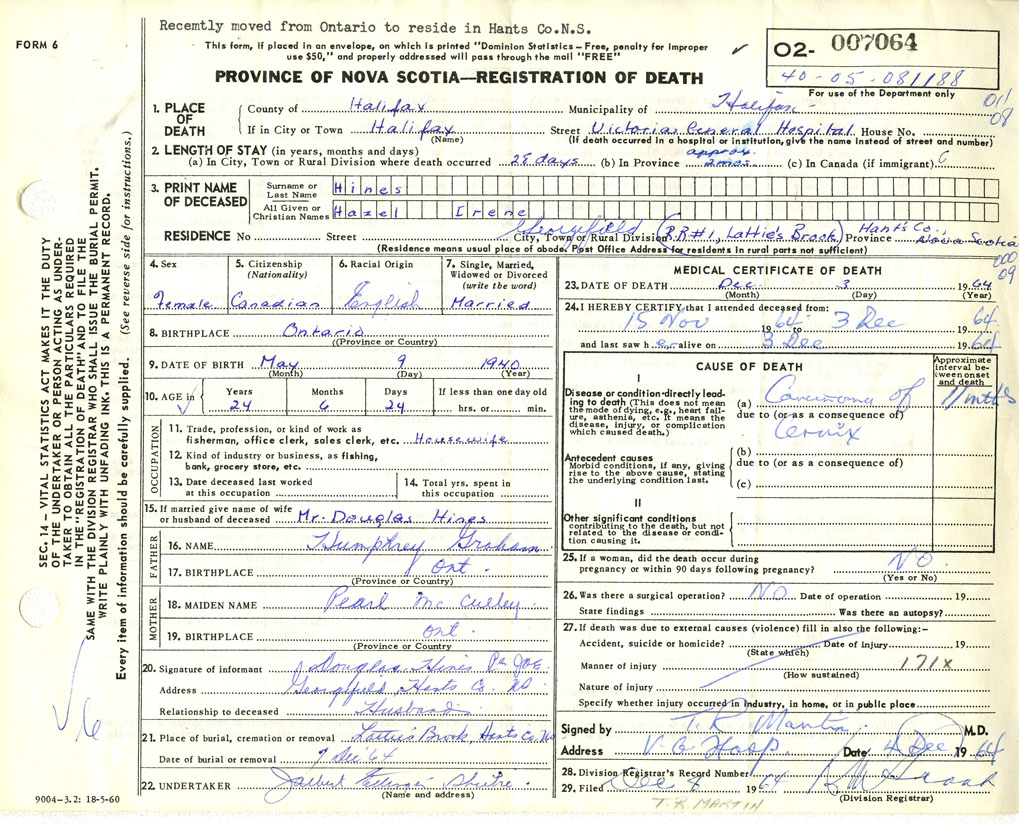 Recemtly moved from Ontario to reside in Hants Co.N.S.
FORM 6
This form, if placed in an envelope, on which is printed "Dominion Statistics – Free, penalty for improper
use $50," and properly addressed will pass through the mail "FREE"
✓
O2- 007064
40-05-081188
For use of the Department only
PROVINCE OF NOVA SCOTIA—REGISTRATION OF DEATH
011
08
1. PLACE OF DEATH
County of Halifax Municipality of Halifax
If in City or Town Halifax Street Victoria General Hospital House No.
(Name) (If death occurred in a hospital or institution, give the name instead of street and number)
2. LENGTH OF STAY (in years, months and days)
(a) In City, Town or Rural Division where death occurred 28 days (b) In Province approx. 2mos. (c) In Canada (if immigrant)
3. PRINT NAME OF DECEASED
Surname or Last Name Hines
All Given or Christian Names Hazel Irene
RESIDENCE No Street City, Town or Rural Division Georgefield (R.R#1, Lattie's Brook) Province Hants Co., Nova Scotia
(Residence means usual place of abode. Post Office Address for residents in rural parts not sufficient)
000
09
4. Sex Female
5. Citizenship (Nationality) Canadian
6. Racial Origin English
7. Single, Married, Widowed or Divorced (write the word) Married
8. BIRTHPLACE Ontario
(Province or Country)
9. DATE OF BIRTH May 9 1940
(Month) (Day) (Year)
10. AGE in Years Months Days If less than one day old
✓ 24 6 24 hrs. or min.
OCCUPATION
11. Trade, profession, or kind of work as
fisherman, office clerk, sales clerk, etc. Housewife
12. Kind of industry or business, as fishing,
bank, grocery store, etc.
13. Date deceased last worked
at this occupation
14. Total yrs. spent in
this occupation
15. If married give name of wife
or husband of deceased Mr. Douglas Hines
FATHER
16. NAME Humphrey Graham
17. BIRTHPLACE Ont.
(Province or Country)
MOTHER
18. MAIDEN NAME Pearl McCulley
19. BIRTHPLACE Ont.
(Province or Country)
20. Signature of informant Douglas Hines Per
Address Georgefield, Hants Co. NS
Relationship to deceased Husband
21. Place of burial, cremation or removal Latties Brook, Hants Co. NS
Date of burial or removal 7 Dec '64
22. UNDERTAKER
(Name and address)
MEDICAL CERTIFICATE OF DEATH
23. DATE OF DEATH Dec 3 1964
(Month) (Day) (Year)
24. I HEREBY CERTIFY that I attended deceased from:
15 Nov 1964 to 3 Dec 1964
and last saw her alive on 3 Dec 1964
CAUSE OF DEATH
Approximate interval between onset and death
I
Disease or condition directly leading to death (This does not mean
the mode of dying, e.g., heart failure, asthenia, etc. It means the
disease, injury, or complication
which caused death.)
(a) Carcinoma of 11 mths
due to (or as a consequence of)
Cervix
Antecedent causes
Morbid conditions, if any, giving
rise to the above cause, stating
the underlying condition last.
(b)
due to (or as a consequence of)
(c)
II
Other significant conditions
contributing to the death, but not
related to the disease or condition causing it.
25. If a woman, did the death occur during
pregnancy or within 90 days following pregnancy? NO
(Yes or No)
26. Was there a surgical operation? NO Date of operation 19
State findings Was there an autopsy?
27. If death was due to external causes (violence) fill in also the following:–
Accident, suicide or homicide? Date of injury 19
(State which)
Manner of injury 171x
(How sustained)
Nature of injury
Specify whether injury occurred in Industry, in home, or in public place
Signed by T.R. Martin M.D.
Address V.G. Hosp. Date 4 Dec 1964
28. Division Registrar's Record Number
29. Filed Dec 8 1964
(Division Registrar)
T.R. MARTIN
SEC. 14 – VITAL STATISTICS ACT MAKES IT THE DUTY
OF THE UNDERTAKER OR PERSON ACTING AS UNDER-
TAKER TO OBTAIN ALL THE PARTICULARS REQUIRED
IN THE "REGISTRATION OF DEATH" AND TO FILE THE
SAME WITH THE DIVISION REGISTRAR WHO SHALL ISSUE THE BURIAL PERMIT.
WRITE PLAINLY WITH UNFADING INK. THIS IS A PERMANENT RECORD.
Every item of information should be carefully supplied. (See reverse side for instructions.)
✓6
9004-3.2: 18-5-60